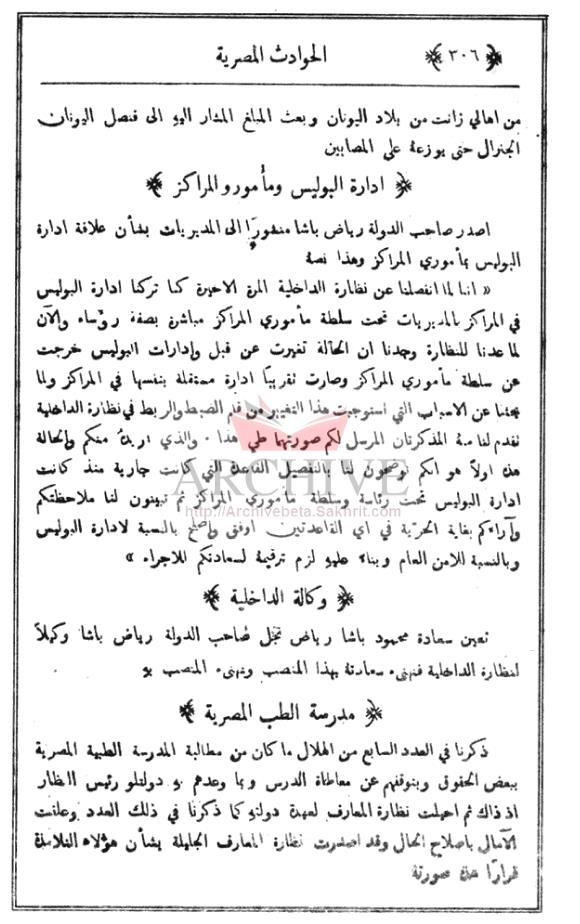 ﴿ ٣٠٦ ﴾
الحوادث المصرية
من اهالي زانت من بلاد اليونان وبعث المبلغ المشار اليه الى قنصل اليونان
الجنرال حتى يوزعة على المصابين
﴿ ادارة البوليس ومأمورو المراكز ﴾
اصدر صاحب الدولة رياض باشا منشورًا الى المديريات بشأن علاقة ادارة
البوليس بمأموري المراكز وهذا نصة
« اننا لما انفصلنا عن نظارة الداخلية المرة الاخيرة كنا تركنا ادارة البوليس
في المراكز بالمديريات تحت سلطة مأموري المراكز مباشرة بصفة رؤساء والآن
لما عدنا للنظارة وجدنا ان الحالة تغيرت عن قبل وإدارات البوليس خرجت
عن سلطة مأموري المراكز وصارت تقريبًا ادارة مستقلة بنفسها في المراكز ولما
بحثنا عن الاسباب التي استوجبت هذا التغيير من قلم الضبط والربط في نظارة الداخلية
تقدم لنا منة المذكرتان المرسل لكم صورتها طي هذا . والذي اريدهُ منكم والحالة
هذه اولاً هو انكم توضحون لنا بالتفصيل القاعدة التي كانت جارية منذ كانت
ادارة البوليس تحت رئاسة وسلطة مأموري المراكز ثم تبينون لنا ملاحظتكم
وآراءكم بغاية الحرّية في اي القاعدتين اوفق واصلح بالنسبة لادارة البوليس
وبالنسبة للامن العام وبناءً عليه لزم ترقيمة لسعادتكم للاجراء »
﴿ وكالة الداخلية ﴾
تعين سعادة محمود باشا رياض نجل صاحب الدولة رياض باشا وكيلاً
لنظارة الداخلية فنهنيء سعادتة بهذا المنصب ونهنيء المنصب به
﴿ مدرسة الطب المصرية ﴾
ذكرنا في العدد السابع من الهلال ما كان من مطالبة المدرسة الطبية المصرية
ببعض الحقوق وبتوقفهم عن معاطاة الدرس وبما وعدهم به دولتلو رئيس النظار
اذ ذاك ثم احيلت نظارة المعارف لعهدة دولته كما ذكرنا في ذلك العدد وعلقت
الآمال باصلاح الحال وقد اصدرت نظارة المعارف الجليلة بشأن هؤلاء التلامذة
قرارًا هذه صورتة
ARCHIVE
http://Archivebeta.Sakhrit.com